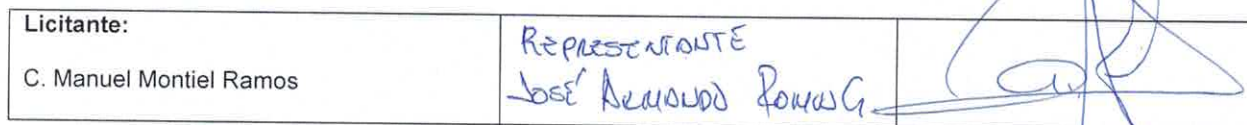 Licitante:
C. Manuel Montiel Ramos
REPRESENTANTE
JOSÉ ARMANDO ROMAN G.